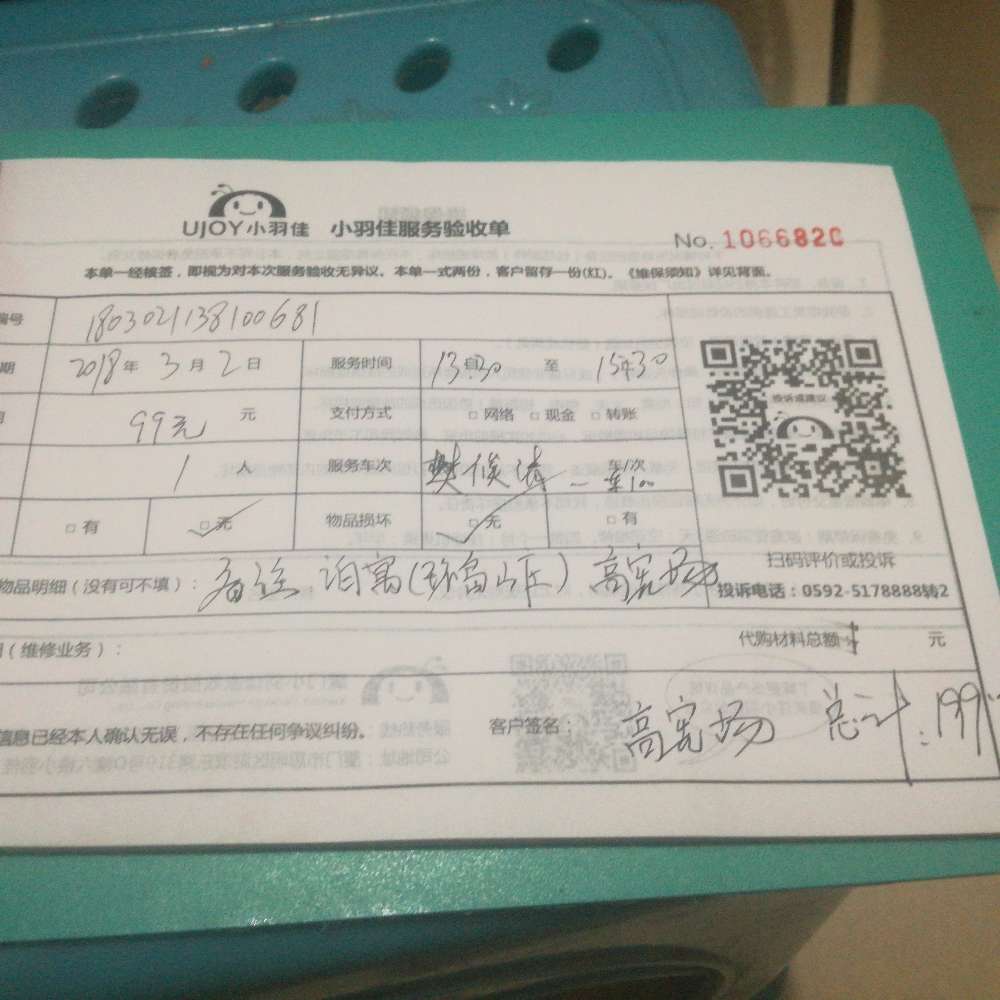 UJOY小羽佳 小羽佳服务验收单
No. 1066820
本单一经核签，即视为对本次服务验收无异议。本单一式两份，客户留存一份(红)。《维保须知》详见背面。
编号 1803021138100681
期 2018年3月2日 服务时间 13:30 至 15:30
99元 元 支付方式 □网络 □现金 □转账
1 人 服务车次 车/次
投诉或建议
□有 □无 物品损坏 □无 □有
扫码评价或投诉
物品明细（没有可不填）： 备注 泊寓 高宪场
投诉电话：0592-5178888转2
（维修业务）： 代购材料总额 元
信息已经本人确认无误，不存在任何争议纠纷。 客户签名： 高宪场 总计：199